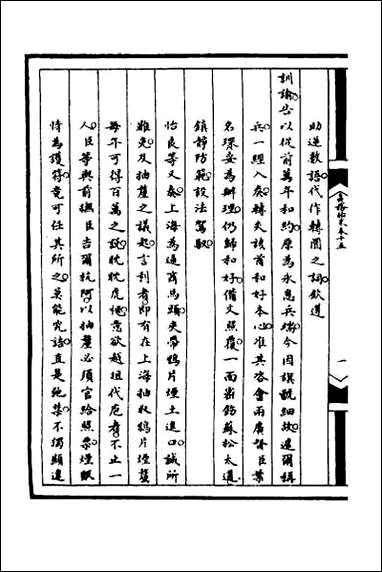 助逆數語代作轉圜之詞欽遵
訓諭告以從前萬年和約原為永息兵端今因誤觀細故遽爾稱
兵一經入奏轉失該酋和好本心准其咨會兩廣督臣葉
名琛妥為辦理仍歸和好備文照覆一面密飭蘇松太道
鎮靜防範設法駕馭
怡良等又奏上海為通商馬頭夾帶鴉片煙土進口誠所
難免及抽釐之議起言利者即有在上海抽收鴉片煙釐
每年可得百萬之說眈眈虎視意欲越俎代庖者不止一
人臣等與前撫臣吉爾杭阿以抽釐必須官給照票煙販
恃為護符竟可任其所之莫能究詰直是弛禁不獨顯違
一